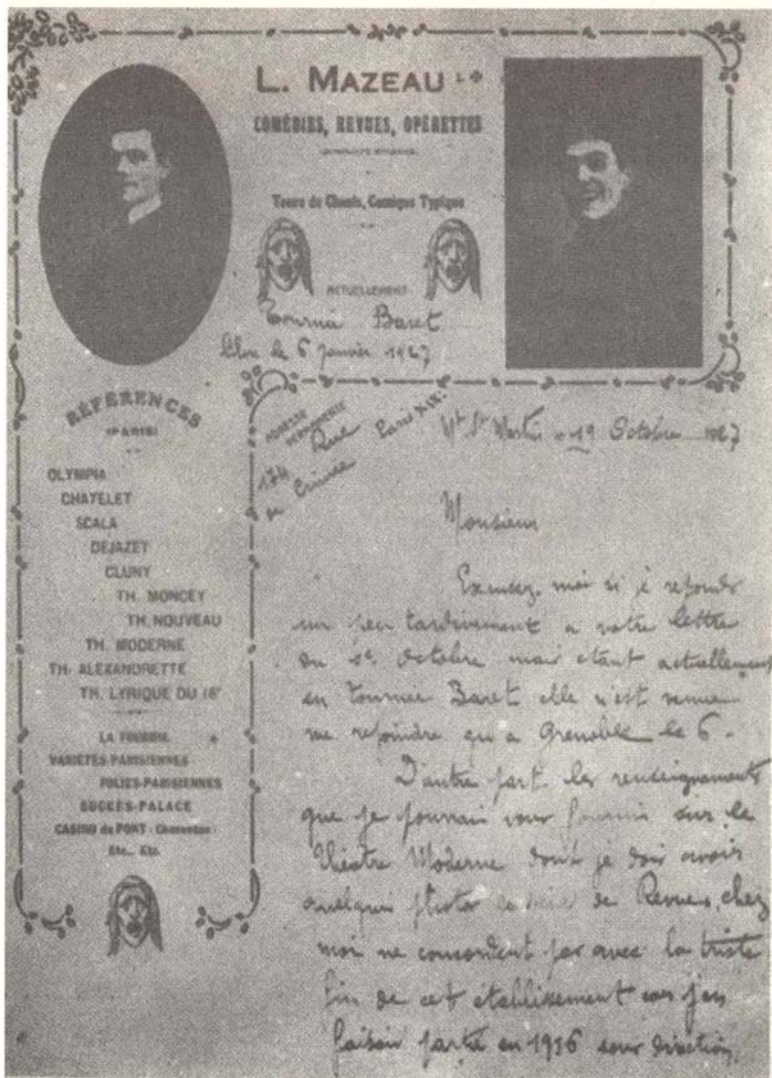 L. MAZEAU
COMÉDIES, REVUES, OPÉRETTES
Tours de Chants, Comique Typique
ACTUELLEMENT
Tournée Baret
libre le 6 janvier 1927
RÉFÉRENCES
(PARIS)
OLYMPIA
CHATELET
SCALA
DEJAZET
CLUNY
TH. MONCEY
TH. NOUVEAU
TH. MODERNE
TH. ALEXANDRETTE
TH. LYRIQUE DU 16e
LA FOURMI
VARIÉTÉS-PARISIENNES
FOLIES-PARISIENNES
SUCCÈS-PALACE
CASINO du PONT (Charenton)
Etc... Etc.
ADRESSE PERMANENTE
174 Rue
de Crimée
Paris XIX.
Mt St Martin 19 Octobre 1927
Monsieur
Excusez-moi si je réponds
un peu tardivement a votre lettre
du 1er Octobre mais étant actuellement
en tournée Baret elle n'est venue
me rejoindre qu'a Grenoble le 6.
D'autre part les renseignements
que je pourrais vous fournir sur le
Théâtre Moderne dont je dois avoir
quelques photos de Revues, chez
moi ne concordent pas avec la triste
fin de cet établissement car j'en
faisais partie en 1916 sous direction,